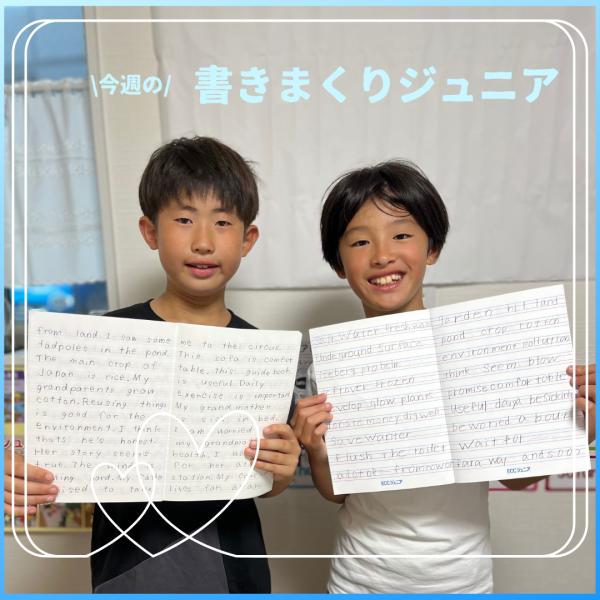 \今週の/ 書きまくりジュニア
from land. I saw some
tadpoles in the pond.
The main crop of
Japan is rice. My
grandparents grow
cotton. Reusing things
is good for the
environment. I think
thats he's honest.
Her story seems
true. The
me to the circus.
This sofa is comfor
table. This guidebook
is useful. Daily
exercise is important
My grandmother
is in bed.
I am worried
my grandma
health. I
for her at
station. My
lives far
water fresh
underground surface
iceberg protein
travel frozen
develop slow planet
money dig well
save wanter
Flush the toilet
a lot of from now
garden hill land
pond crop cotton
environment pollution
think seem blow
promise comfortable
useful daya be sick in
be worried about
wait for
far away and soon
ECCジュニア
ECCジュニア